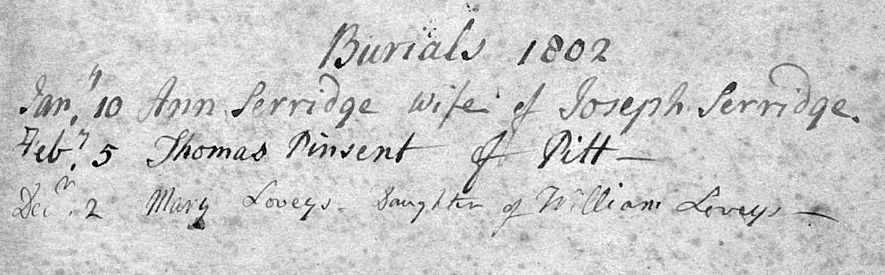 Burials 1802
Jan.y 10 Ann Serridge wife of Joseph Serridge.
Feb.y 5 Thomas Pinsent of Pitt —
Decr. 2 Mary Loveys - Daughter of William Loveys —